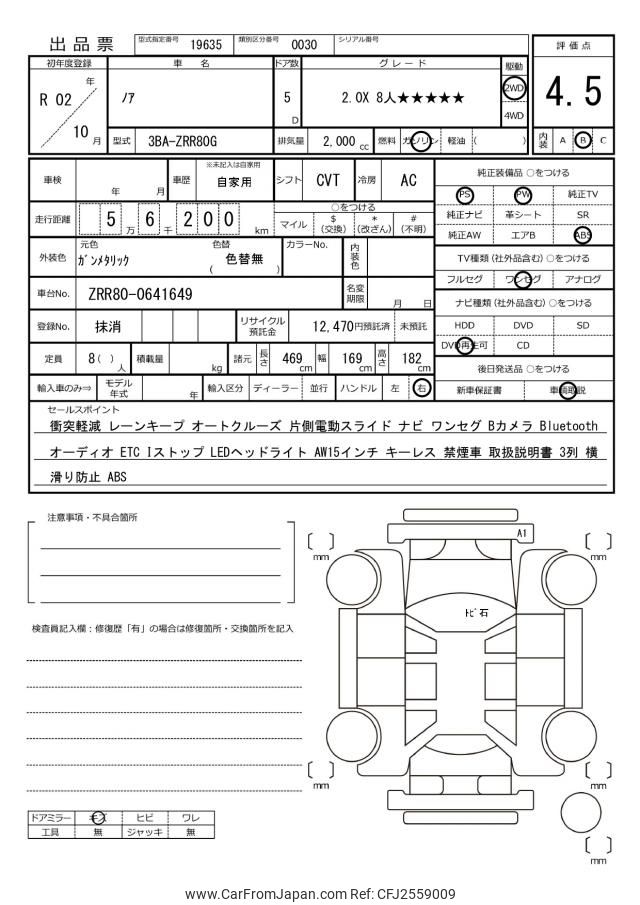 出品票 型式指定番号 19635 類別区分番号 0030 シリアル番号 評価点
初年度登録 車名 ドア数 グレード 駆動
R 02 年 10 月 ノア 5 D 2.0X 8人★★★★★ 2WD 4WD 4.5
型式 3BA-ZRR80G 排気量 2,000 cc 燃料 ガソリン 軽油 ( ) 内装 A B C
車検 年 月 車歴 ※未記入は自家用 自家用 シフト CVT 冷房 AC 純正装備品 ○をつける
PS PW 純正TV
走行距離 5 万 6 千 2 0 0 km ○をつける マイル $ (交換) * (改ざん) # (不明) 純正ナビ 革シート SR
純正AW エアB ABS
外装色 元色 ガンメタリック 色替 ( 色替無 ) カラーNo. 内装色 TV種類 (社外品含む) ○をつける
フルセグ ワンセグ アナログ
車台No. ZRR80-0641649 名変期限 月 日 ナビ種類 (社外品含む) ○をつける
登録No. 抹消 リサイクル預託金 12,470円預託済 未預託 HDD DVD SD
DVD再生可 CD
定員 8 ( ) 人 積載量 kg 諸元 長さ 469 cm 幅 169 cm 高さ 182 cm 後日発送品 ○をつける
輸入車のみ⇒ モデル年式 年 輸入区分 ディーラー 並行 ハンドル 左 右 新車保証書 車輌取説
セールスポイント
衝突軽減 レーンキープ オートクルーズ 片側電動スライド ナビ ワンセグ Bカメラ Bluetooth
オーディオ ETC Iストップ LEDヘッドライト AW15インチ キーレス 禁煙車 取扱説明書 3列 横
滑り防止 ABS
注意事項・不具合箇所
A1
mm mm
トビ石
検査員記入欄：修復歴「有」の場合は修復箇所・交換箇所を記入
mm mm
ドアミラー キズ ヒビ ワレ
工具 無 ジャッキ 無
mm
www.CarFromJapan.com Ref: CFJ2559009